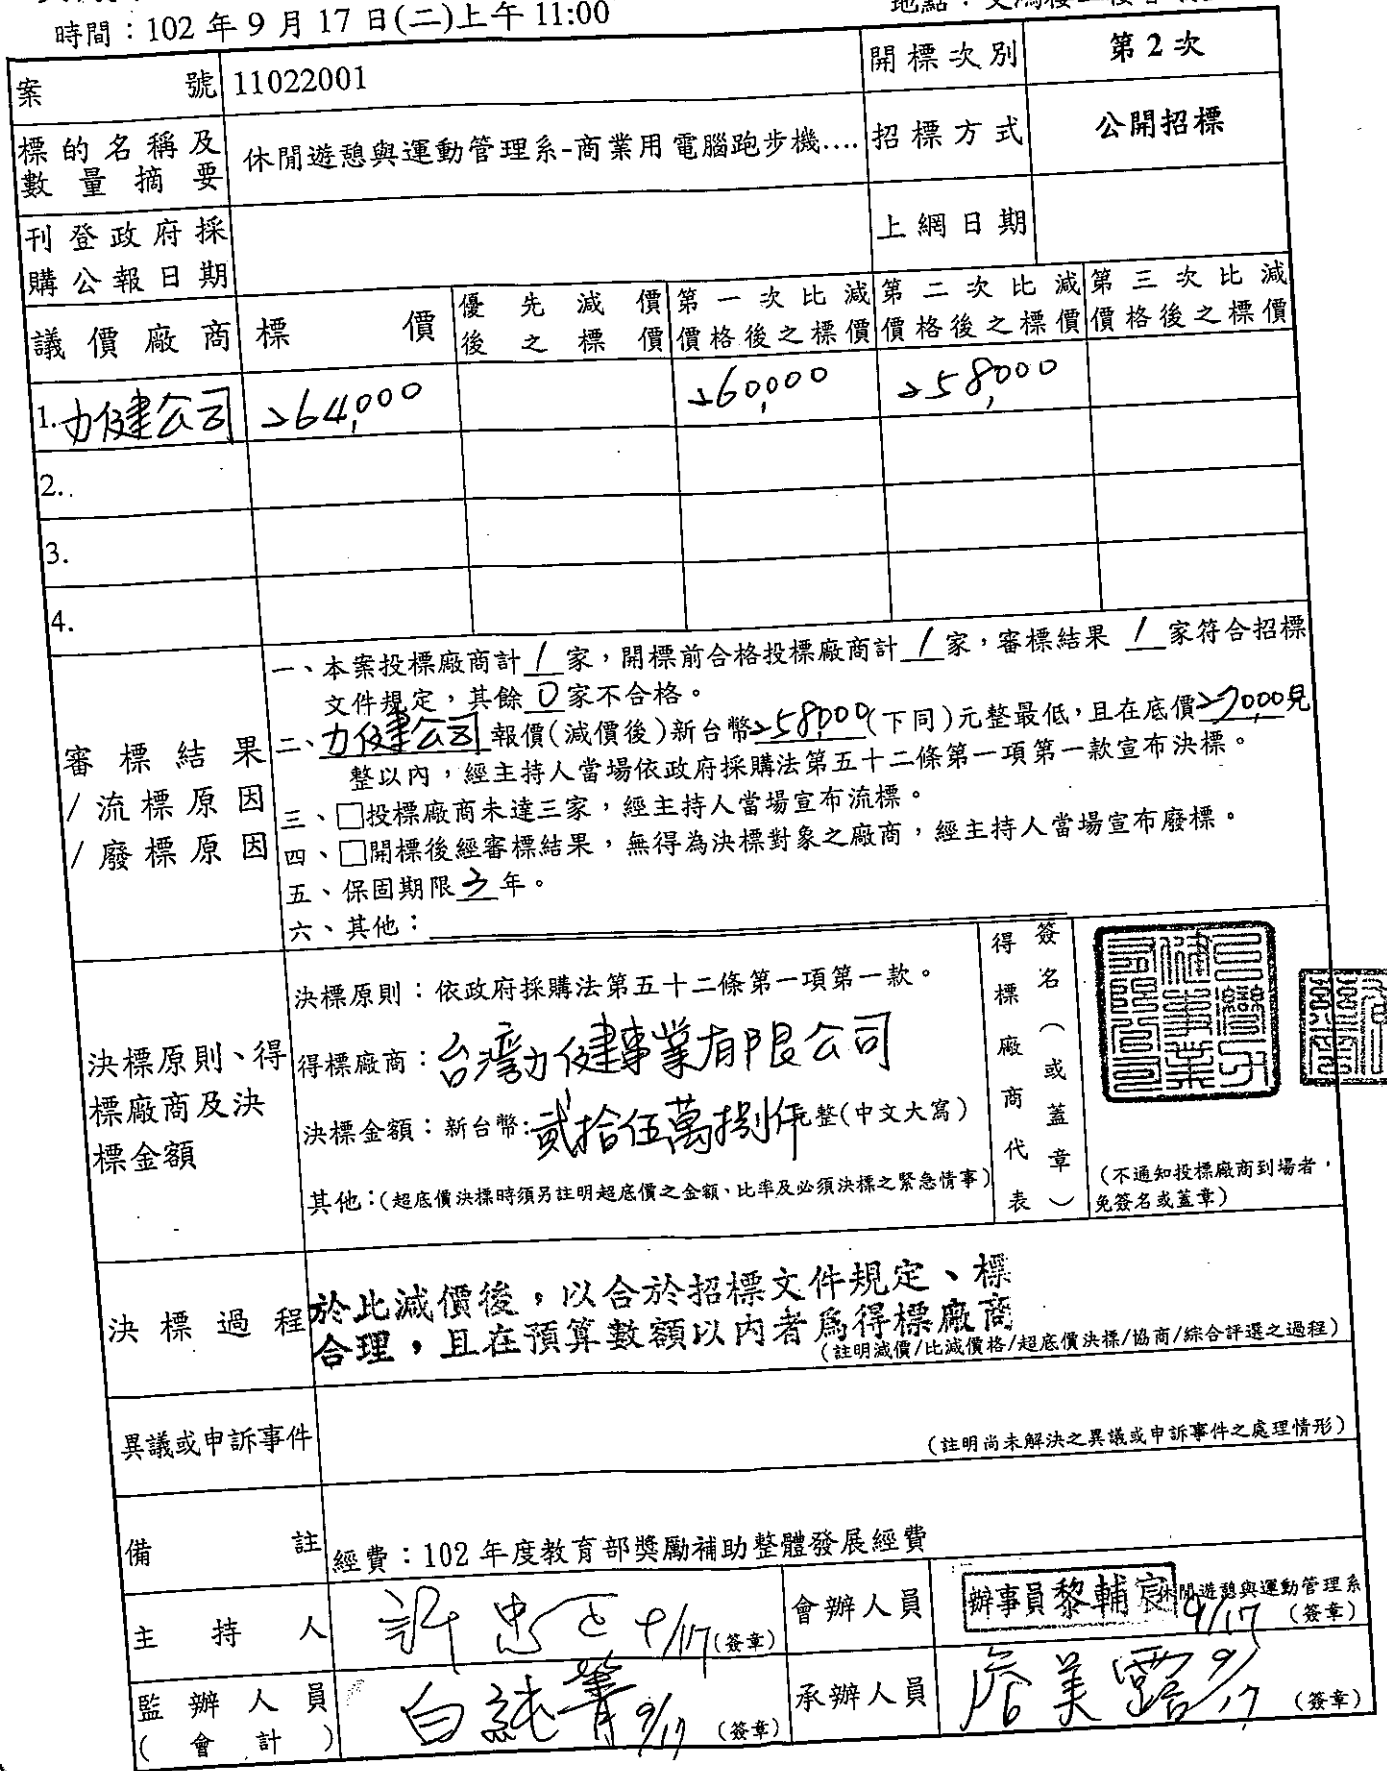 時間：102 年 9 月 17 日(二)上午 11:00
案號 11022001 開標次別 第 2 次
標的名稱及數量摘要 休閒遊憩與運動管理系-商業用電腦跑步機.... 招標方式 公開招標
刊登政府採購公報日期 上網日期
議價廠商 標價 優先減價後之標價 第一次比減價格後之標價 第二次比減價格後之標價 第三次比減價格後之標價
1. 力健公司 264,000 260,000 258,000
2.
3.
4.
審標結果/流標原因/廢標原因
一、本案投標廠商計 1 家，開標前合格投標廠商計 1 家，審標結果 1 家符合招標
文件規定，其餘 0 家不合格。
二、力健公司 報價(減價後)新台幣 258,000 (下同)元整最低，且在底價
整以內，經主持人當場依政府採購法第五十二條第一項第一款宣布決標。
三、□投標廠商未達三家，經主持人當場宣布流標。
四、□開標後經審標結果，無得為決標對象之廠商，經主持人當場宣布廢標。
五、保固期限 年。
六、其他：
決標原則、得標廠商及決標金額
決標原則：依政府採購法第五十二條第一項第一款。
得標廠商：台灣力健事業有限公司
決標金額：新台幣：貳拾伍萬捌仟元整(中文大寫)
其他：(超底價決標時須另註明超底價之金額、比率及必須決標之緊急情事)
得標廠商代表
簽名（或蓋章）
(不通知投標廠商到場者，
免簽名或蓋章)
決標過程
於比減價後，以合於招標文件規定、標
合理，且在預算數額以內者為得標廠商
(註明減價/比減價格/超底價決標/協商/綜合評選之過程)
異議或申訴事件 (註明尚未解決之異議或申訴事件之處理情形)
備註 經費：102 年度教育部獎勵補助整體發展經費
主持人 9/17 (簽章) 會辦人員 辦事員黎輔宸 休閒遊憩與運動管理系 9/17 (簽章)
監辦人員(會計) 白純菁 9/17 (簽章) 承辦人員 詹美露 9/17 (簽章)